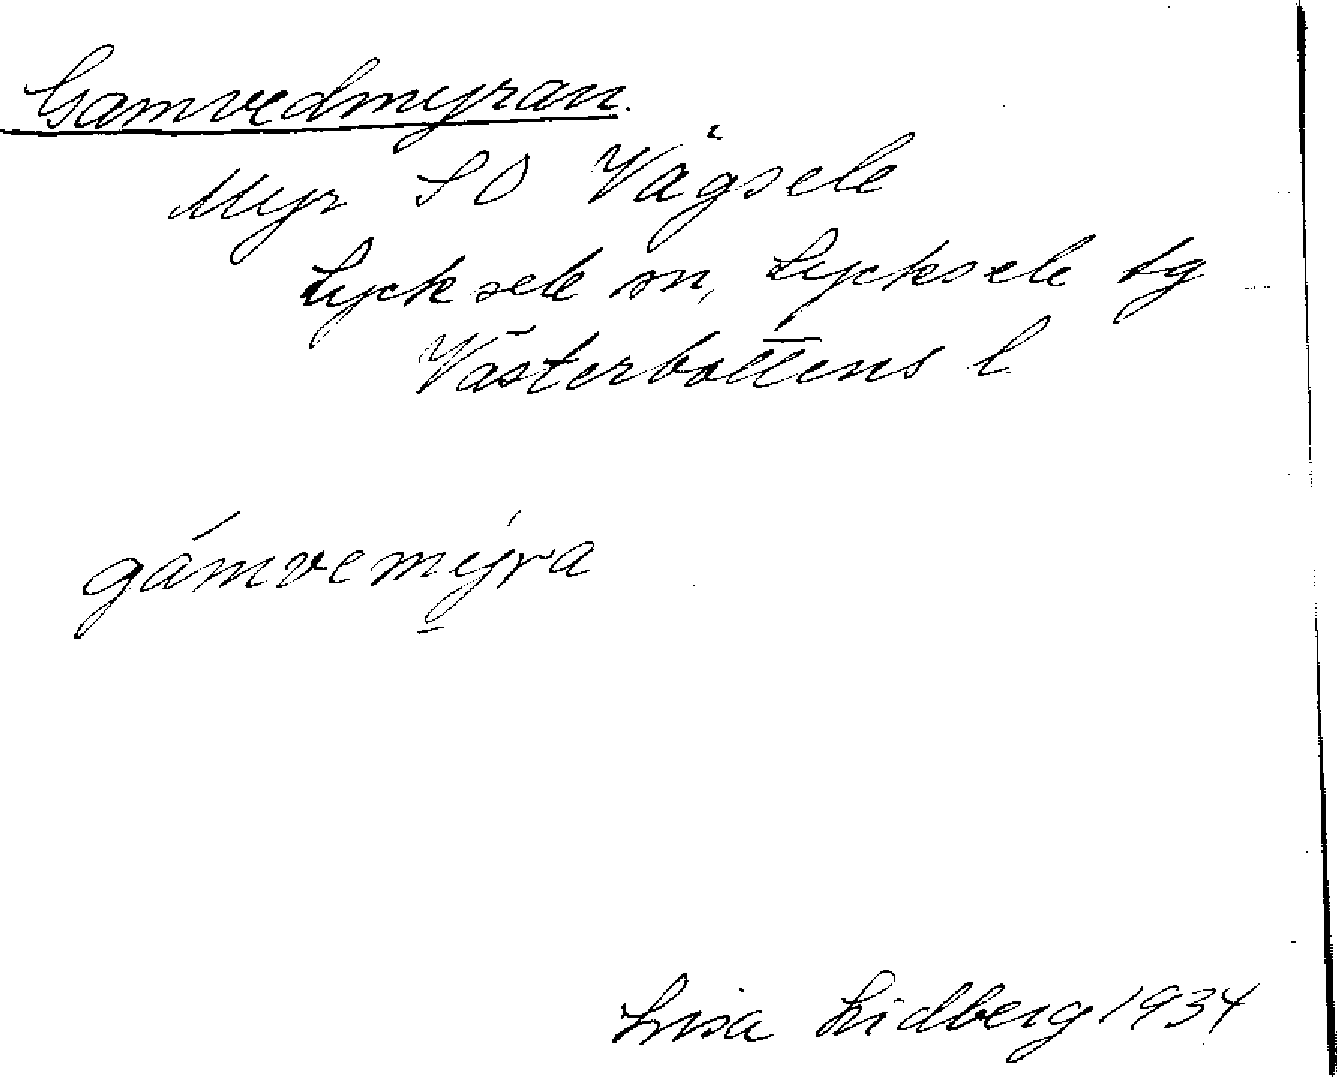 Gamvedmyran.
Myr SO Vägsele
Lycksele sn, Lycksele tg
Västerbottens l
gámvemýra
Lisa Lidberg 1934